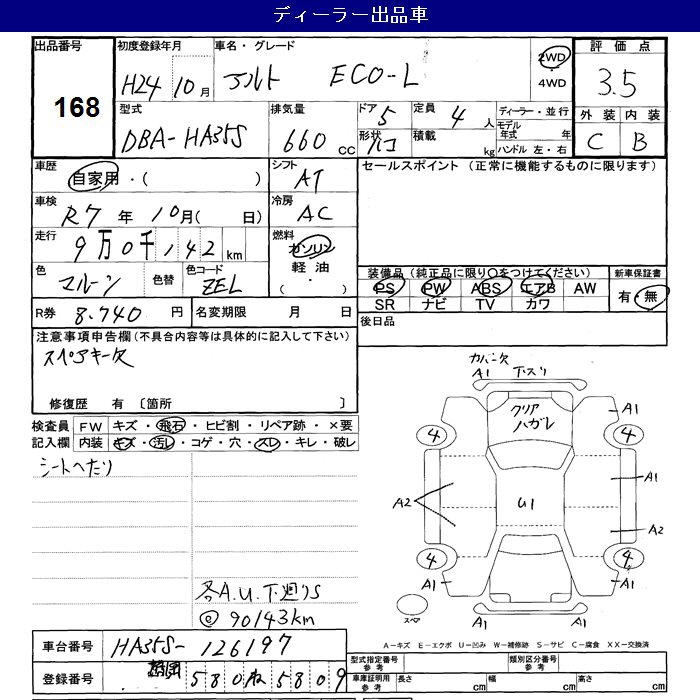 ディーラー出品車
出品番号
168
初度登録年月
H24 10月
車名・グレード
アルト ECO-L
2WD
・
4WD
評価点
3.5
外装 内装
C B
型式
DBA-HA35S
排気量
660 cc
ドア 5
形状 ハコ
定員 4 人
積載 kg
ディーラー・並行
モデル年式 年
ハンドル 左・右
車歴
自家用・( )
車検
R7年 10月( 日)
走行
9万0千142km
色
マルーン
色替
色コード
ZEL
シフト
AT
冷房
AC
燃料
ガソリン
軽油
( ・ )
セールスポイント (正常に機能するものに限ります)
装備品(純正品に限り○をつけてください)
新車保証書
PS PW ABS エアB AW
SR ナビ TV カワ
有・無
R券 8.740 円
名変期限 月 日
後日品
注意事項申告欄(不具合内容等は具体的に記入して下さい)
スペアキー欠
修復歴 有 〔箇所 〕
検査員記入欄
FW キズ・飛石・ヒビ割・リペア跡・×要
内装 キズ・汚レ・コゲ・穴・スレ・キレ・破レ
シートヘたり
各A.U.下廻りS
@ 90143km
カバー欠
A1 下スリ
クリア
ハガレ
A1
4 4
A1
A2 U1
A2
4 4
A1 A1
A1 A1
スペア
A-キズ E-エクボ U-凹み W-補修跡 S-サビ C-腐食 XX-交換済
車台番号 HA35S-126197
登録番号 580 ね 5809
型式指定番号 参考
類別区分番号 参考
車庫証明用 参考
長さ cm 幅 cm 高さ cm